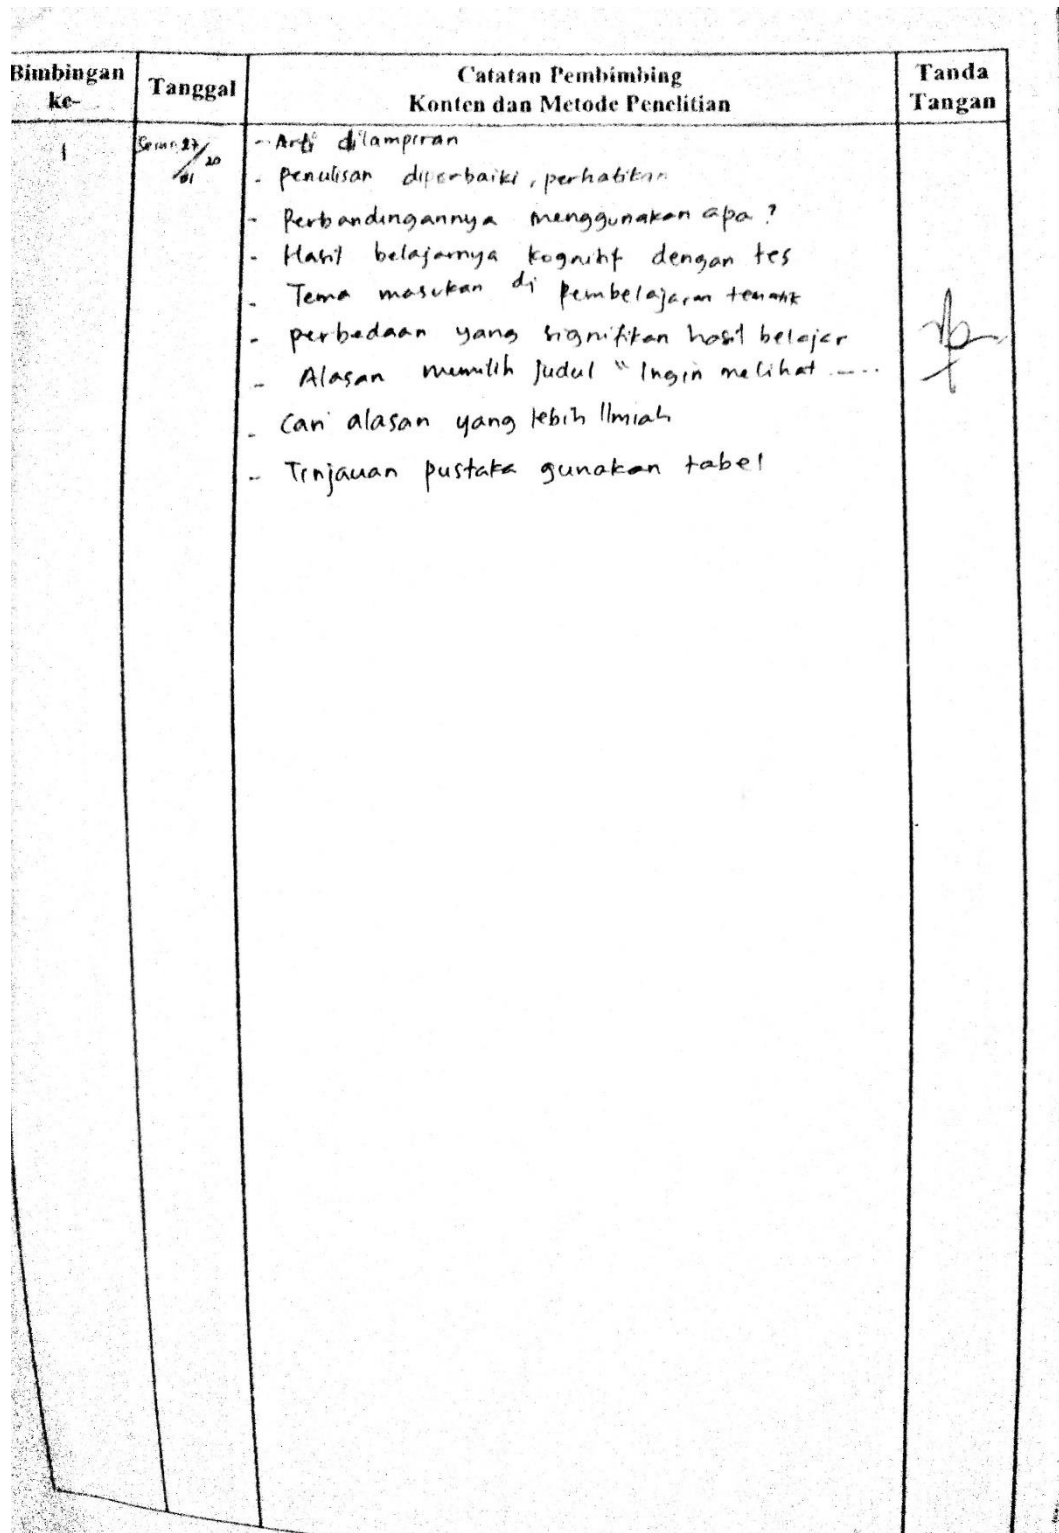 Bimbingan ke-
Tanggal
Catatan Pembimbing
Konten dan Metode Penelitian
Tanda Tangan
1
27/01 20
- Arti dilampiran
- Penulisan diperbaiki, perhatikan
- Perbandingannya menggunakan apa?
- Hasil belajarnya kognitif dengan tes
- Tema masukan di Pembelajaran tematik
- perbedaan yang signifikan hasil belajar
- Alasan memilih Judul " Ingin melihat .....
- Cari alasan yang lebih Ilmiah
- Tinjauan pustaka gunakan tabel